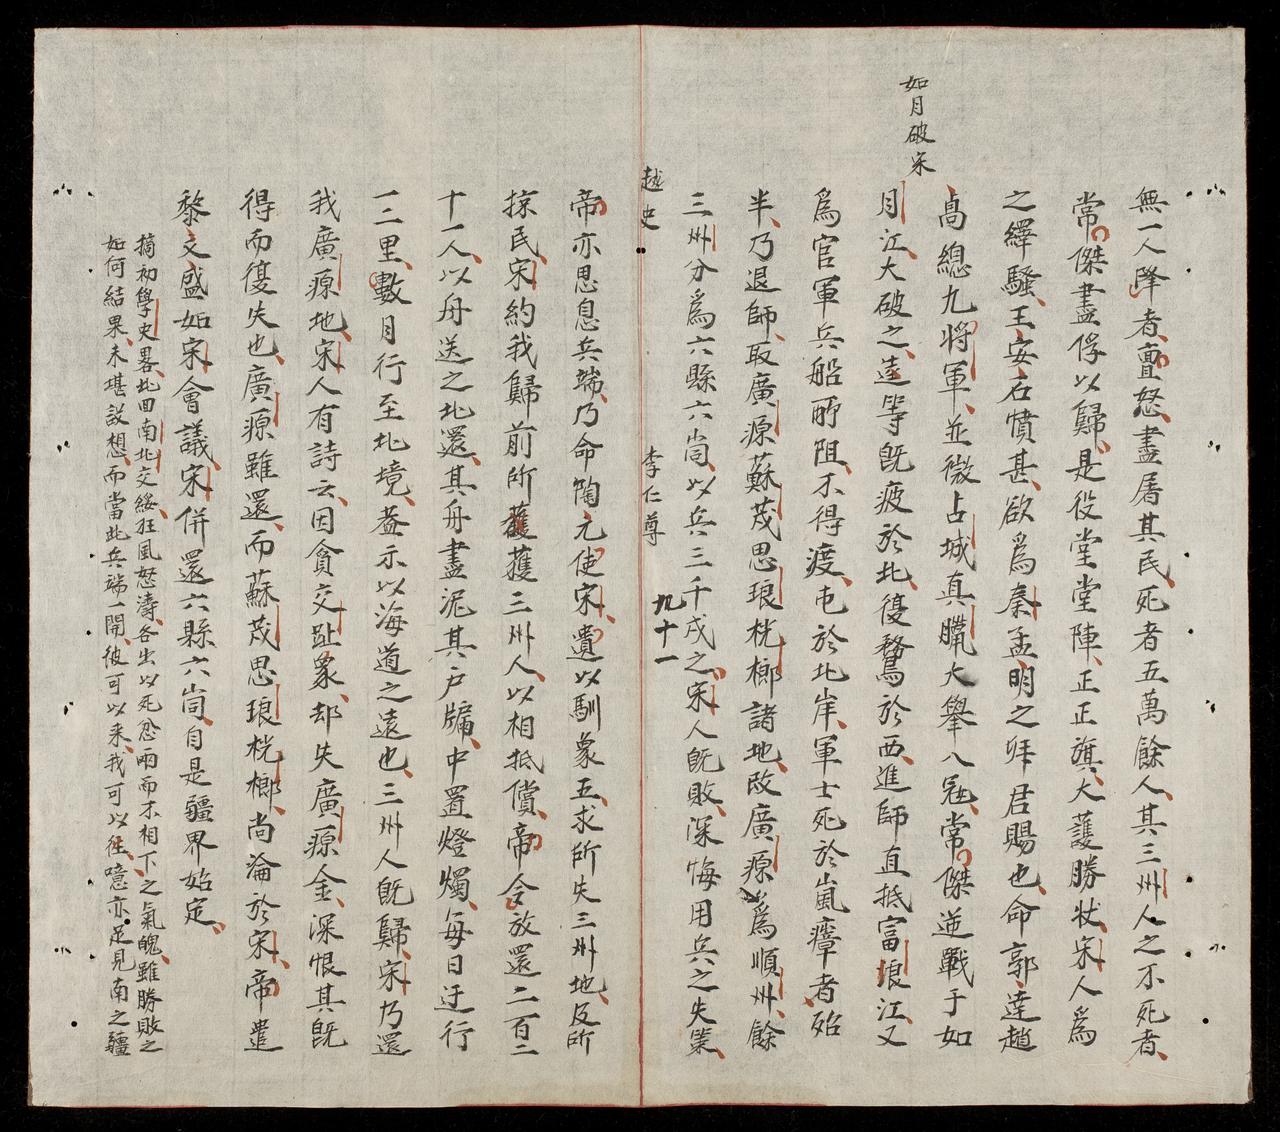 如月破宋
無一人降者亶怒盡屠其民死者五萬餘人其三州人之不死者
常傑盡俘以歸是役堂堂陣正正旗大護勝狀宋人爲
之繹騷王安石憤甚欲爲秦孟明之拜君賜也命郭逵趙
卨總九將軍並微占城真臘大舉入冦常傑逆戰于如
月江大破之逵等旣疲於北復鶩於西進師直抵富垠江又
爲官軍兵船所阻不得渡屯於北岸軍士死於嵐瘴者殆
半乃退師取廣源蘇茂思琅桄榔諸地改廣源爲順州餘
三州分爲六縣六峝以兵三千戍之宋人旣敗深悔用兵之失策
越史
李仁尊
九十一
帝亦思息兵端乃命陶元使宋遺以馴象五求所失三州地及所
掠民宋約我歸前所獲三州人以相抵償帝令放還二百二
十一人以舟送之北還其舟盡泥其户牖中置燈燭每日迂行
一二里數月行至北境葢示以海道之遠也三州人旣歸宋乃還
我廣源地宋人有詩云因貪交趾象却失廣源金深恨其旣
得而復失也廣源雖還而蘇茂思琅桄榔尚淪於宋帝遣
黎文盛如宋會議宋併還六縣六峝自是疆界始定
摘初學史畧北囬南北交綏狂風怒濤各出以死忿兩而不相下之氣魄雖勝敗之
如何結果未堪設想而當此兵端一開彼可以來我可以徃噫亦足見南之疆